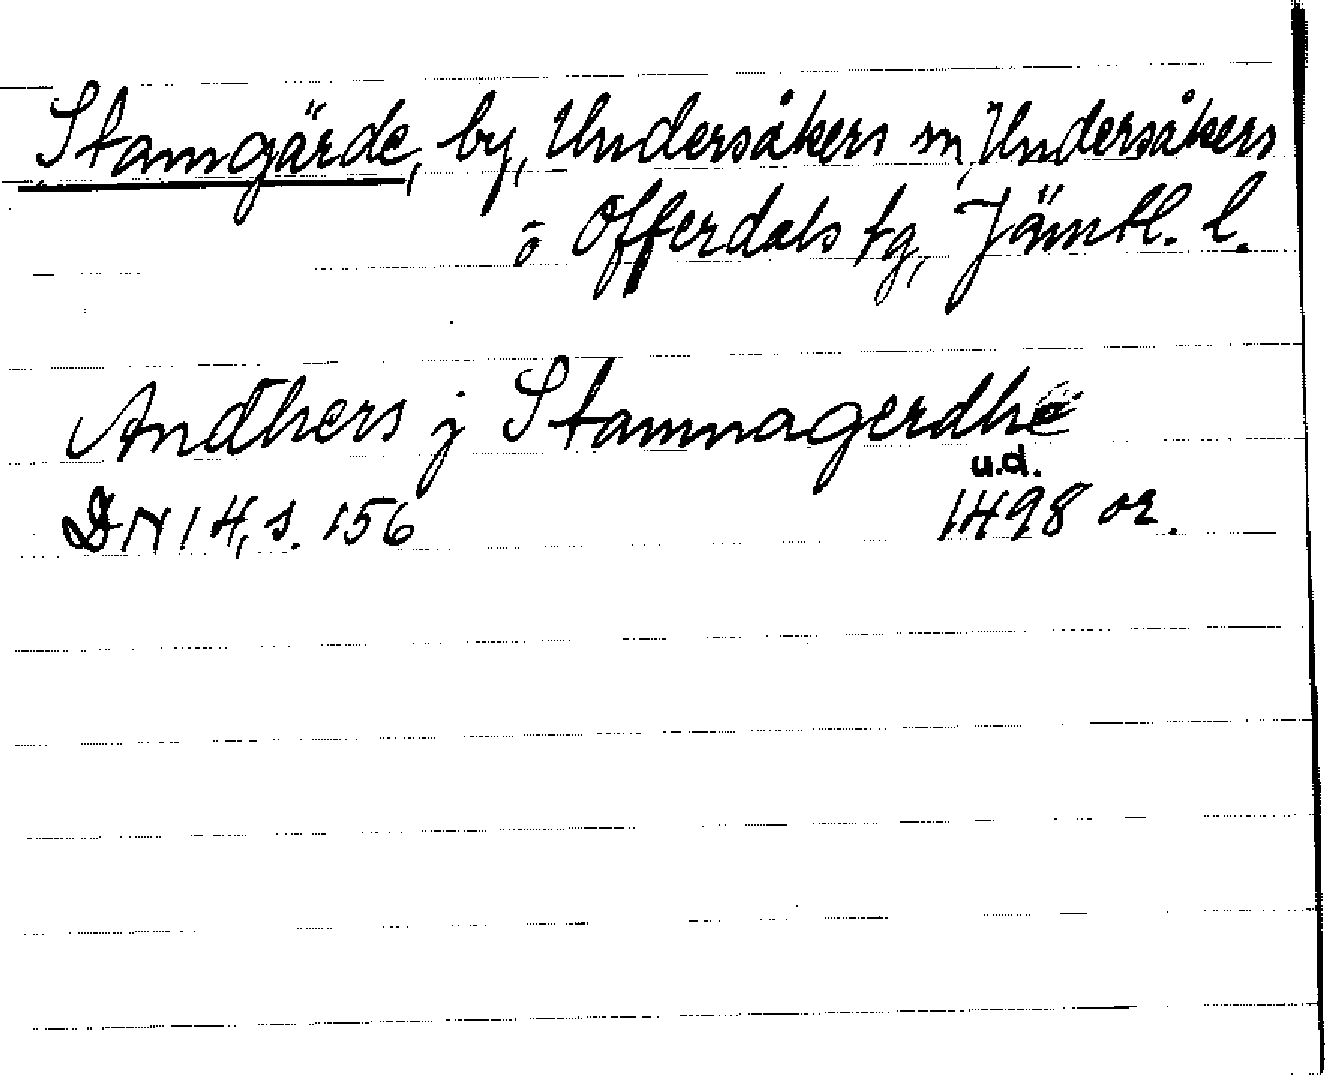 Stamgärde, by, Undersåkers sn, Undersåkers
o Offerdals tg, Jämtl. l.
Andhers j Stamnagerdhe
u.d.
DN 14, s. 156 1498 or.